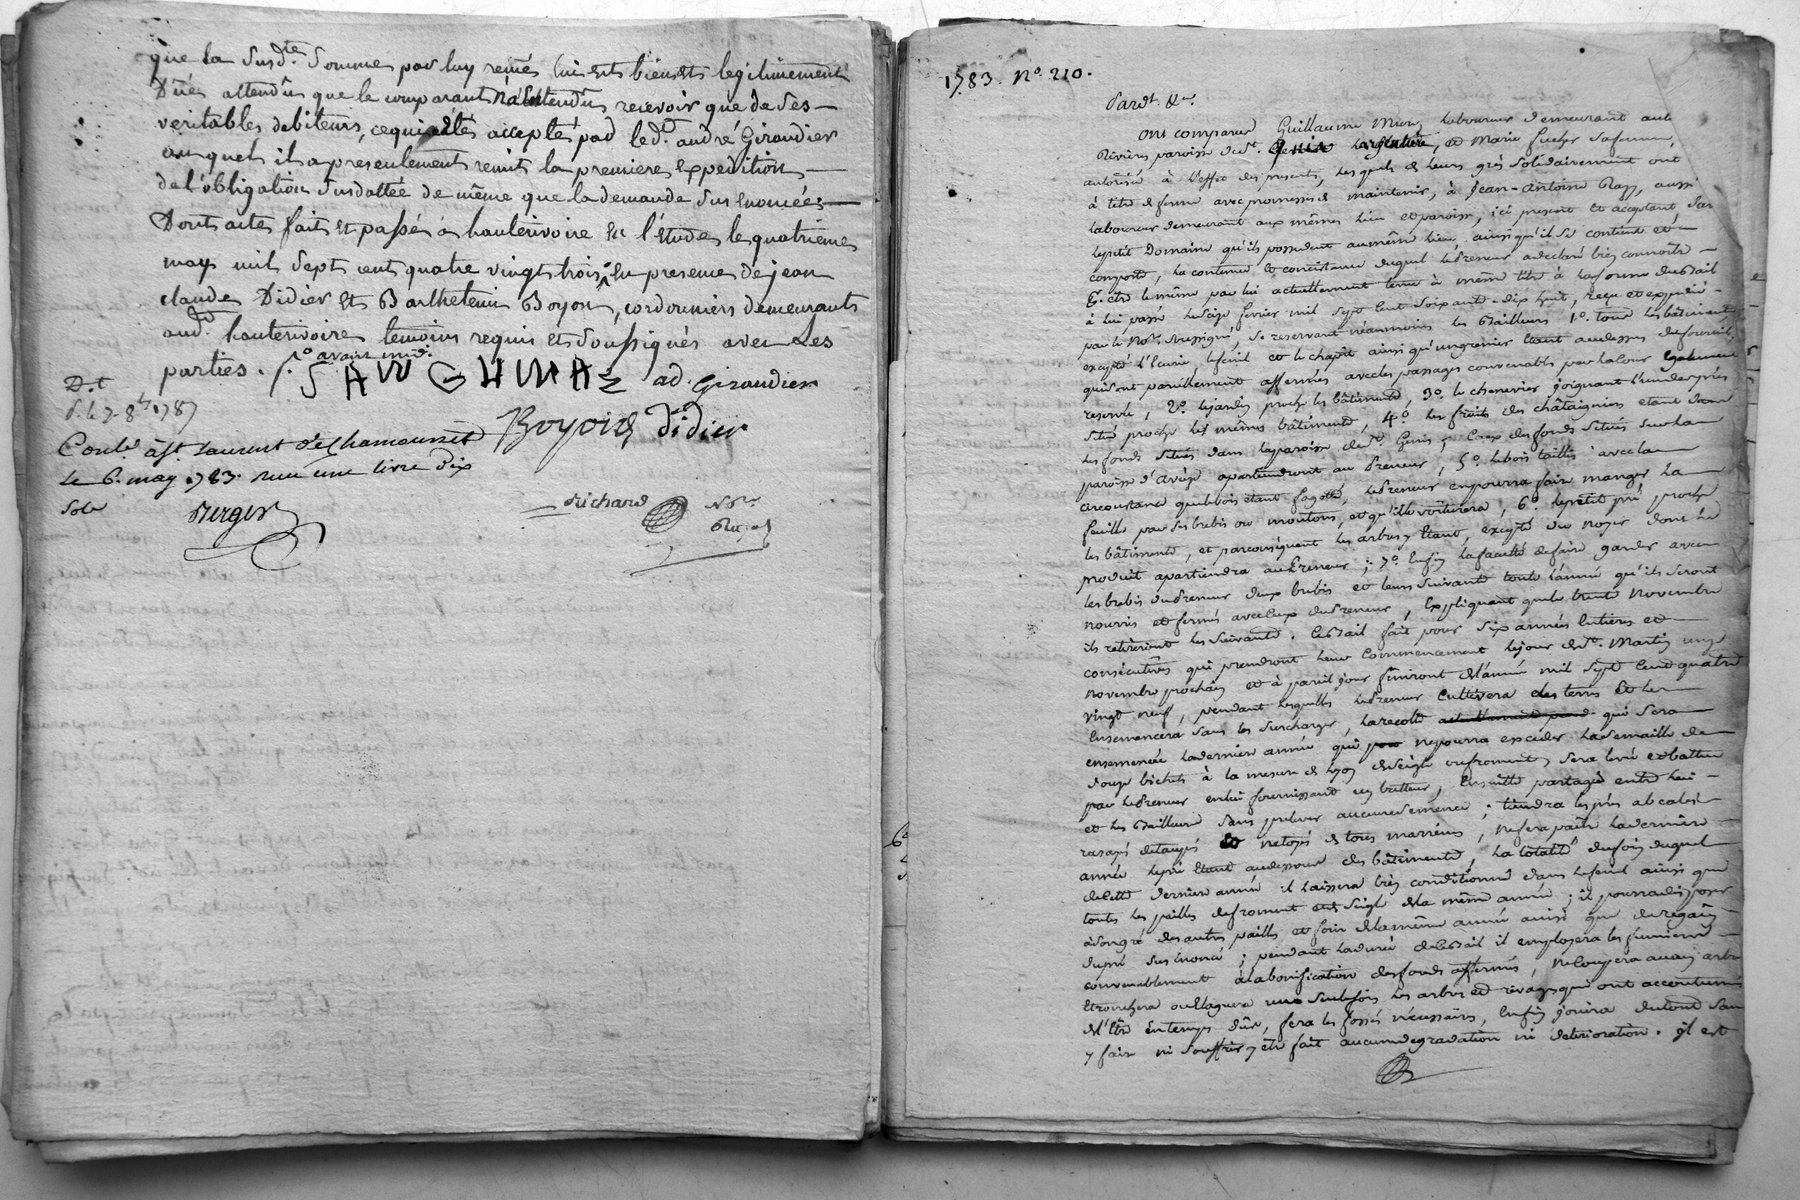 que la susd.te somme par luy remis lui est bien et legitimement
Duë attendû que le comparant n'a entendû recevoir que de ses
veritables debiteurs, ce qui a etés accepté par led. andré Giraudier
auquel il a presentement remit la premiere expedition
de l'obligation susdattée de même que la demande sus enoncéé
Dont actes fait et passé à hauterivoire en l'étude le quatrieme
may mil sept cent quatre vingt trois, en presence de jean
claude Didier et Barthelemi Boyon, cordonniers demeurants
aud. hauterivoire temoins requis et soussignés avec Les
parties. /. avant midi.
ad. Giraudier
D.t
d. le 7. 8bre 1787
Boyon Didier
Conlé. à St Laurent de Chamousset
Le 6. may 1783. reçu une livre dix
sols Berger
Richard No.re
Royal
1783. N°. 210.
Pard.t &c.
ont comparu Guillaume laboureur demeurant au
Riviere paroisse de St. Genis l'argentiere, et Marie sa femme,
autorisée à l'effet des presentes, lesquels de leurs grés solidairement ont
à titre de ferme avec promesse de maintenir, à Jean-Antoine aussi
laboureur demeurant aux mêmes lieu et paroisse, ici present et acceptant, sur
le petit Domaine qu'ils possedent au même lieu, ainsi qu'il se contient et
comporte, la contenue et consistance duquel le Preneur a declaré bien connoitre
Et être le même par lui actuellement tenu à même titre à la forme du Bail
à lui passé le seize fevrier mil sept cent soixante-dix huit, reçu et expedié
par le No.re soussigné, se reservant néanmoins les Bailleurs 1°. tous les bâtiments
excepté l'Ecurie, le fenil et le chapit ainsi qu'un grenier étant au dessus du fournil,
qui sont pareillement affermés avec les passages convenables par la cour Egalement
reservée, 2°. le jardin proche les bâtiments, 3°. le chenevier joignant l'un des prés
situé proche les mêmes bâtiments, 4°. les fruits des châtaigniers étant dans
les fonds situés dans la paroisse de St. Genis; ceux des fonds situés sur la
paroisse d'Avèze apartiendront au Preneur, 5°. le bois taillis avec la
circonstance que le bois étant fagotté, le Preneur en pourra faire manger la
feuille par ses brebis ou moutons, et qu'il le voiturera, 6°. le petit pré proche
les bâtiments, et par conséquent les arbres y étant, excepté un noyer dont le
produit apartiendra au Preneur; 7°. Enfin la faculté de faire garder avec
les brebis du Preneur deux brebis et leurs suivants toute l'année qu'ils seront
nourris et fermés avec ceux du Preneur, Expliquant que le trente Novembre
ils retireront les suivants. Ce Bail fait pour six années entieres et
consécutives qui prendront leur commencement le jour de St. Martin onze
novembre prochain et à pareil jour finiront de l'année mil sept cent quatre
vingt neuf, pendant lesquelles le Preneur cultivera les terres et les
Ensemencera sans les surcharger, la recolte qui sera
ensemencée la derniere année qui ne pourra exceder la semaille de
douze bichets à la mesure de Lyon de seigle ou froment, sera levée et battue
par le Preneur en lui fournissant un batteur, Ensuitte partagée entre lui
et les Bailleurs sans prelever aucune semence; tiendra les prés abealés
rasapés detaupés et netoyés de tous marrains, ne fera paître la derniere
année le pré étant au dessous des bâtiments, la totalité du foin duquel
de cette derniere année il laissera bien conditionné dans le fenil ainsi que
toutes les pailles de froment et de seigle de la même année; il pourra disposer
à son gré des autres pailles et foin de la même année ainsi que du regain
du pré sus énoncé; pendant la durée de ce Bail il employera les fumiers
convenablement à la bonification des fonds affermés, ne coupera aucun arbre
Etronchera ou Elaguera une seule fois les arbres et rivages qui ont accoutumés
de l'être en temps dûs, fera les fossés nécessaires, Enfin jouira du tout sans
y faire ni souffrir y être fait aucune degradation ni deterioration. il est